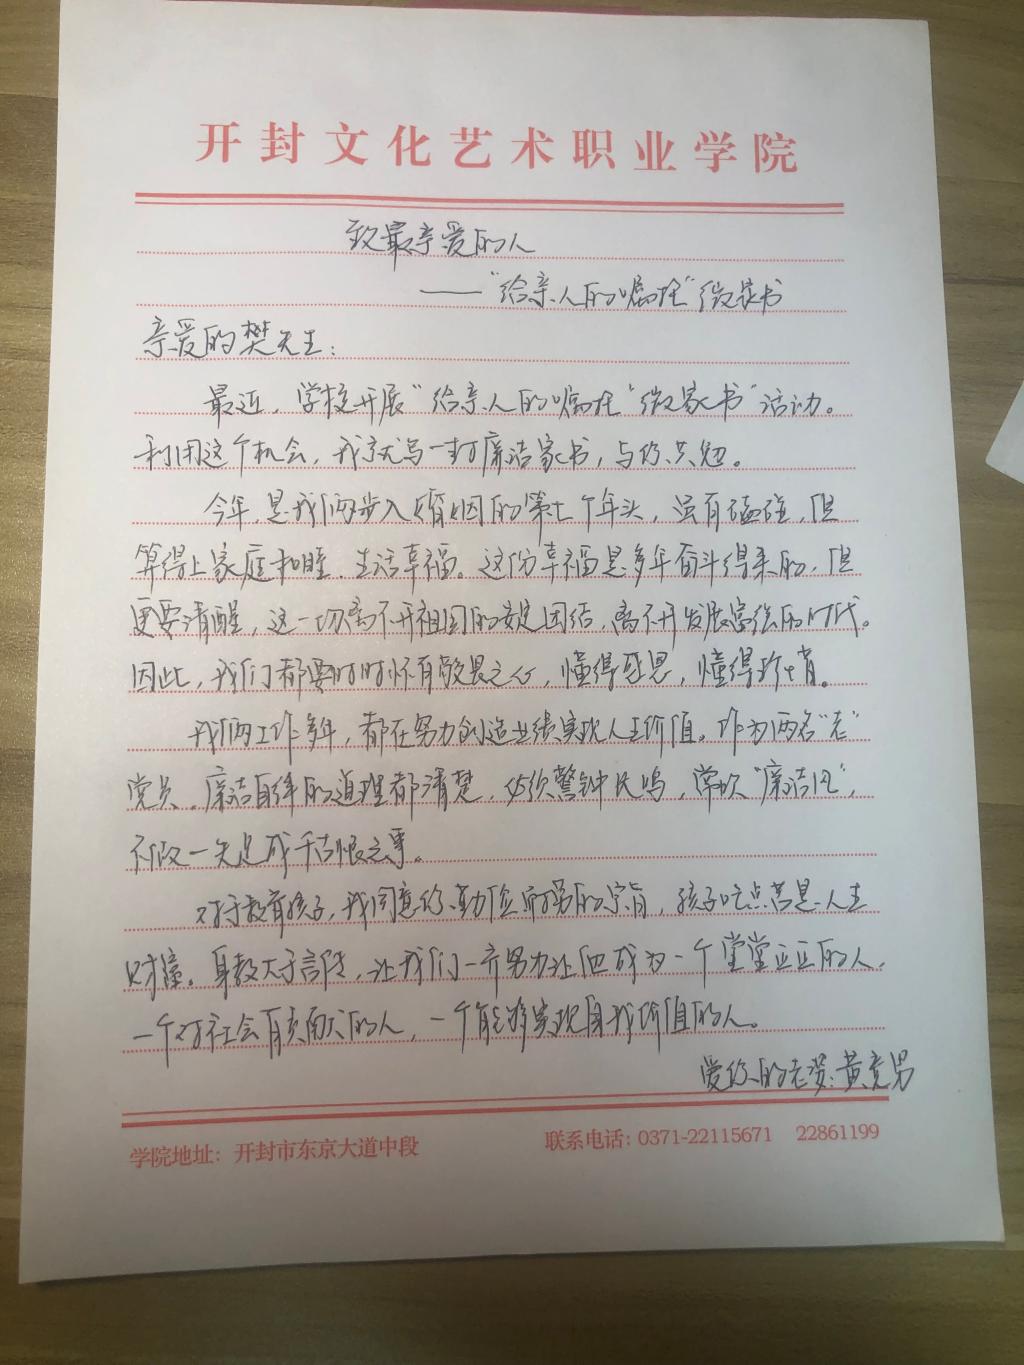 开封文化艺术职业学院
致最亲爱的人
——“给亲人的嘱托”微家书
亲爱的樊先生:
最近,学校开展“给亲人的嘱托“微家书”活动。
利用这个机会,我就写一封廉洁家书,与你共勉。
今年,是我们两步入婚姻的第七个年头,虽有磕碰,但
算得上家庭和睦、生活幸福。这份幸福是多年奋斗得来的,但
更要清醒,这一切离不开祖国的安定团结,离不开发展富强的时代。
因此,我们都要时时怀有敬畏之心,懂得感恩,懂得珍惜。
我俩工作多年,都在努力创造业绩实现人生价值。作为两名“老”
党员,廉洁自律的道理都清楚,必须警钟长鸣,常吹“廉洁风”,
不做一失足成千古恨之事。
对于教育孩子,我同意你勤俭耐劳的宗旨,孩子吃点苦是人生
财富。身教大于言传,让我们一齐努力让他成为一个堂堂正正的人,
一个对社会有贡献的人,一个能够实现自我价值的人。
爱你的老婆:黄竞男
学院地址:开封市东京大道中段 联系电话:0371-22115671 22861199